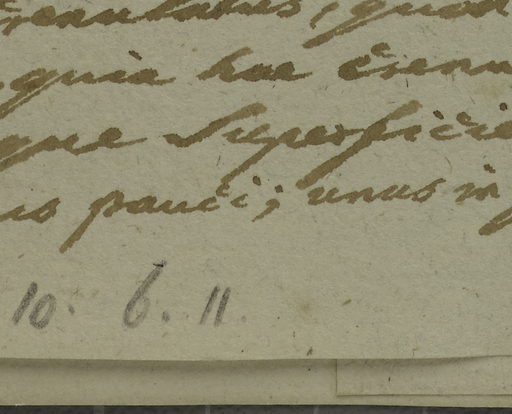 crenulatus, quod
quia hae crenu
que Superficie
us pauci; unus in
10. 6. 11